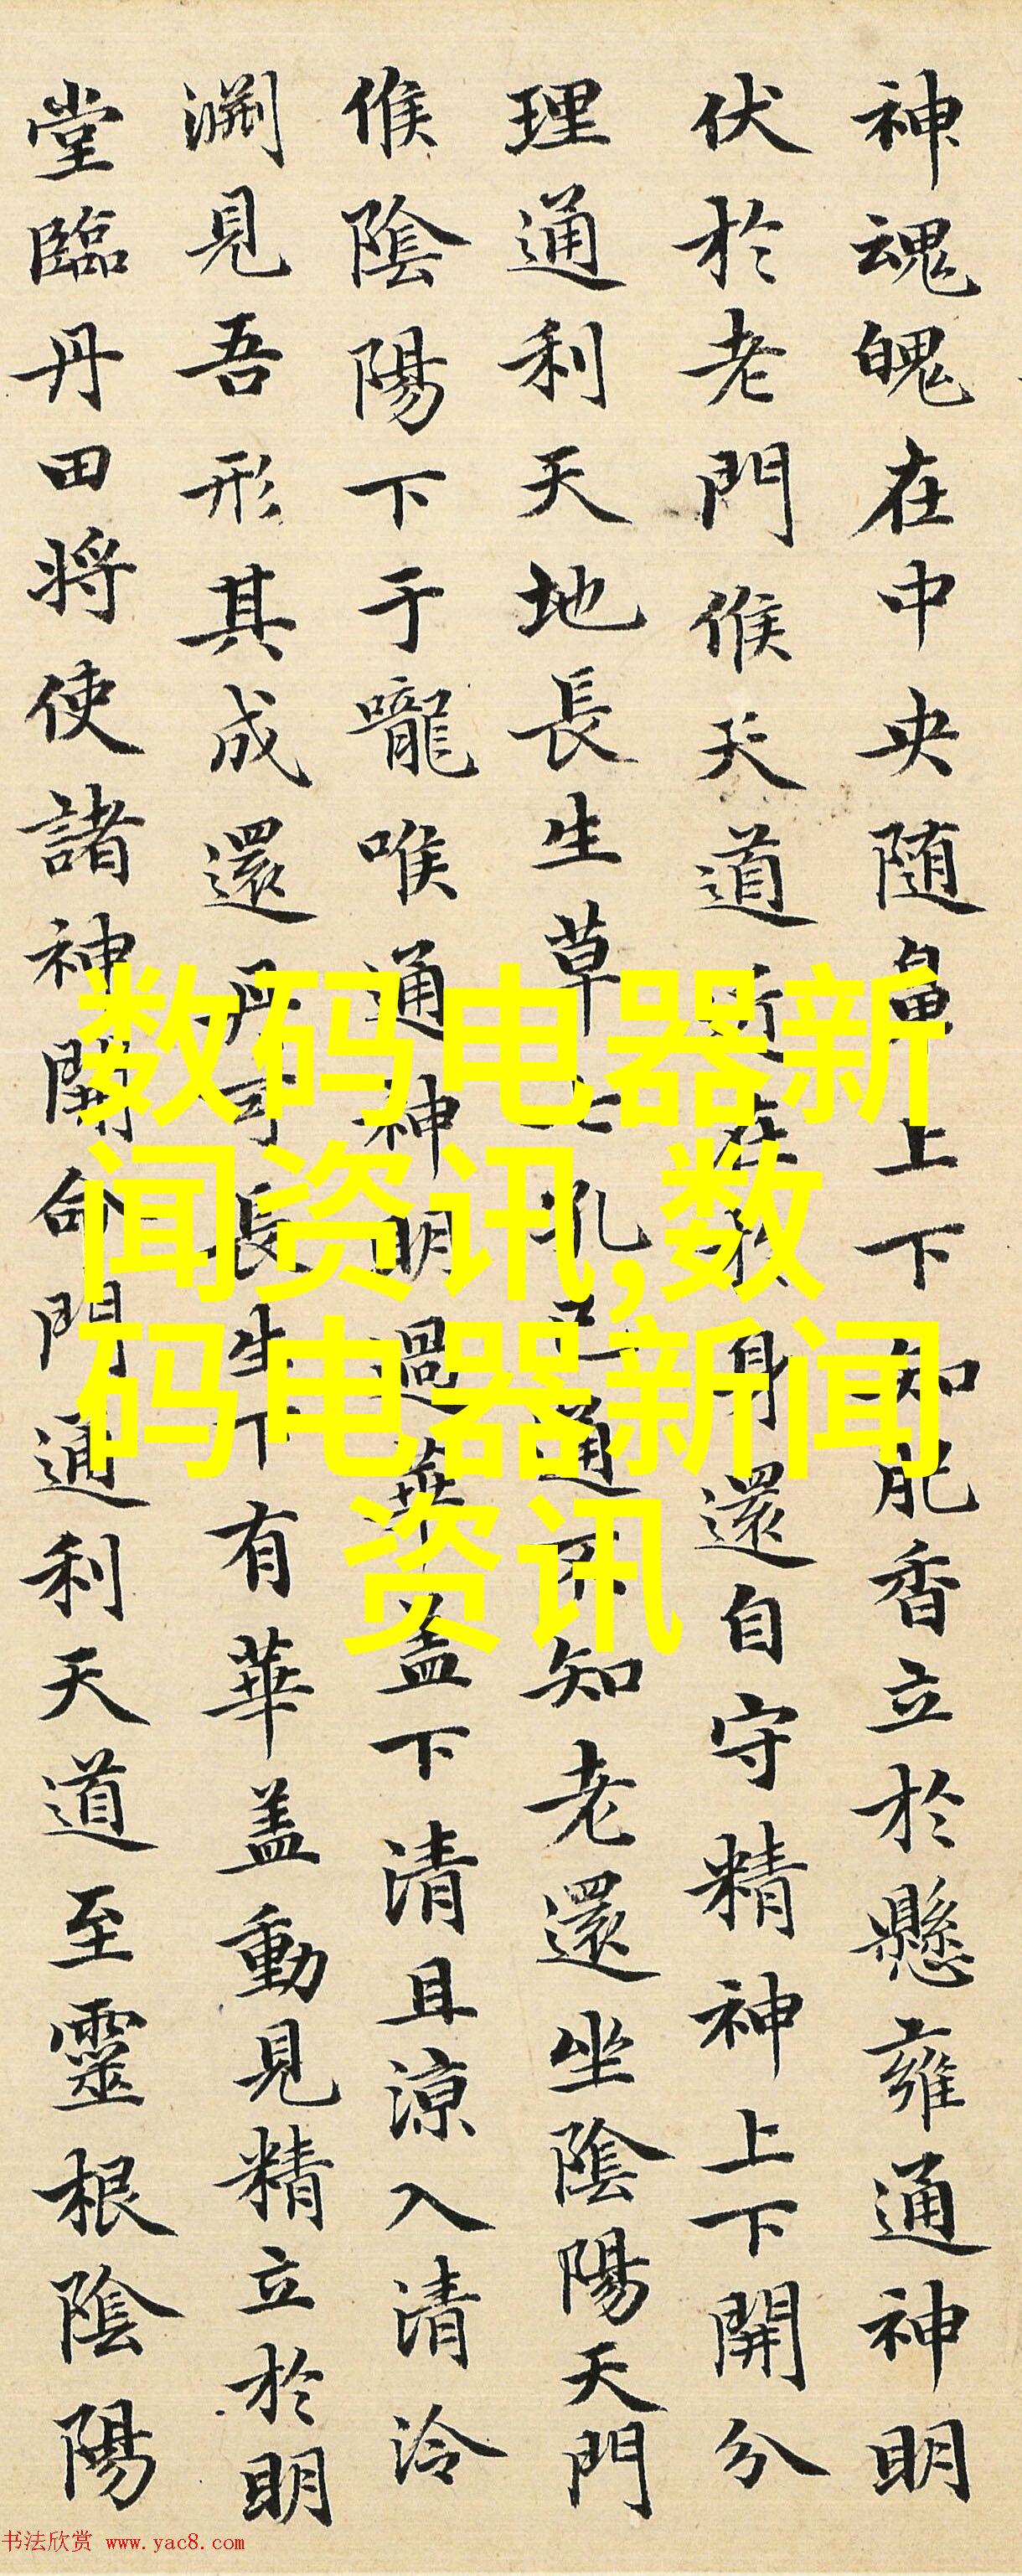 神魂魄在中央随鼻上下知肥香立於懸雍通神明
伏於老門候天道近在於身還自守精神上下開分
理通利天地長生草七孔已通不知老還坐陰陽天門
候陰陽下于嚨喉通神明過華盖下清且涼入清泠
淵見吾形其成還丹可長生下有華盖動見精立於明
堂臨丹田将使諸神開命門通利天道至靈根陰陽
数码电器新
闻资讯,数
码电器新闻
资讯
书法欣赏 www.yac8.com